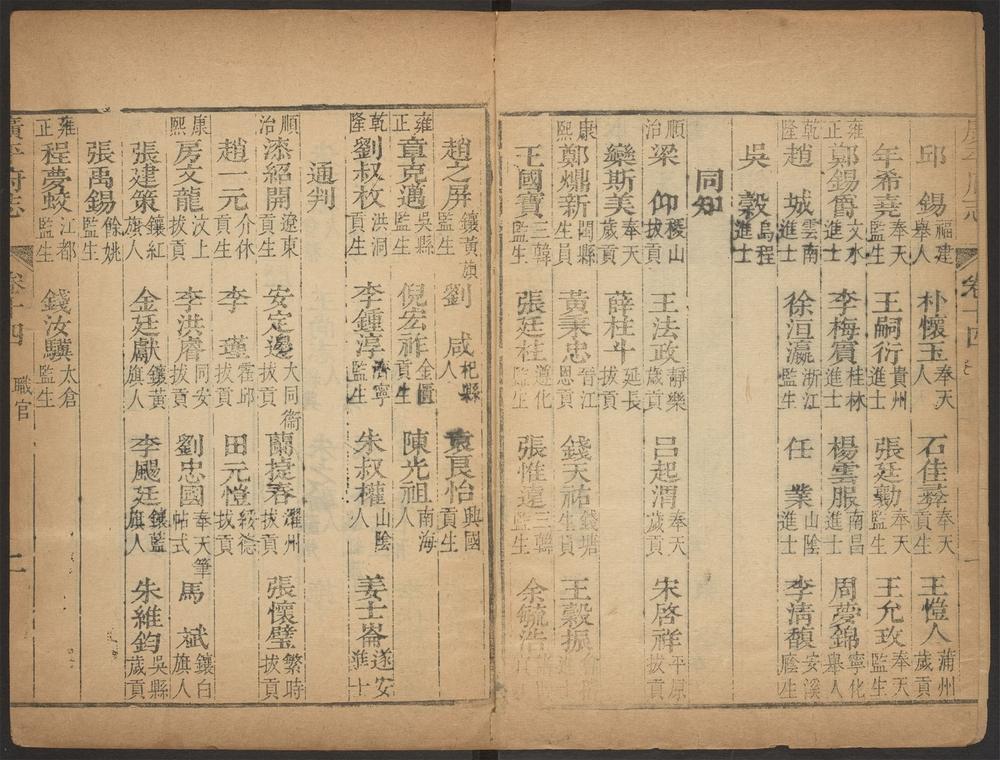 邱錫福建舉人 朴懷玉奉天人 石佳彝奉天貢生 王愷人蒲州歲貢
年希堯奉天監生 王嗣衍貴州進士 張廷勷奉天監生 王允玫奉天監生
雍正 鄭錫爵文水進士 李梅賓桂林進士 楊雲服南昌進士 周夢錦寧化舉人
乾隆 趙城雲南進士 徐洹瀛浙江監生 任業山陰進士 李清馥安溪廕生
吳縠烏程進士
同知
順治 梁仰稷山拔貢 王法政靜樂歲貢 呂起渭奉天歲貢 宋啓祥平原拔貢
欒斯美奉天歲貢 薛柱斗延長拔貢
康熙 鄭爌新閩縣生員 黃秉忠晉江恩貢 錢天祐錢塘生員 王穀振
王國寶三韓監生 張廷桂遵化 張惟遠三韓監生 余毓浩
趙之屏鑲黃旗監生 劉咸杞縣人 袁良怡興國貢生
雍正 章克邁吳縣監生 倪宏祚金匱貢生 陳光祖南海人
乾隆 劉叔枚洪洞貢生 李鍾淳濟寧監生 朱叔權山陰人 姜士崙遂安進士
通判
順治 漆紹開遼東貢生 安定邊大同衞拔貢 蘭捷春濯州拔貢 張懷璧繁畤拔貢
趙一元介休貢生 李瑾霍邱拔貢 田元愷綏德拔貢
康熙 房文龍汶上拔貢 李洪䜭同安拔貢 劉忠國奉天筆帖式 馬斌鑲白旗人
張建策鑲紅旗人 金廷獻鑲黃旗人 李颺廷鑲藍旗人 朱維鈞吳縣歲貢
張禹錫餘姚監生
雍正 程夢蛟江都監生 錢汝驥太倉監生
廣平府志 卷十四 職官 二